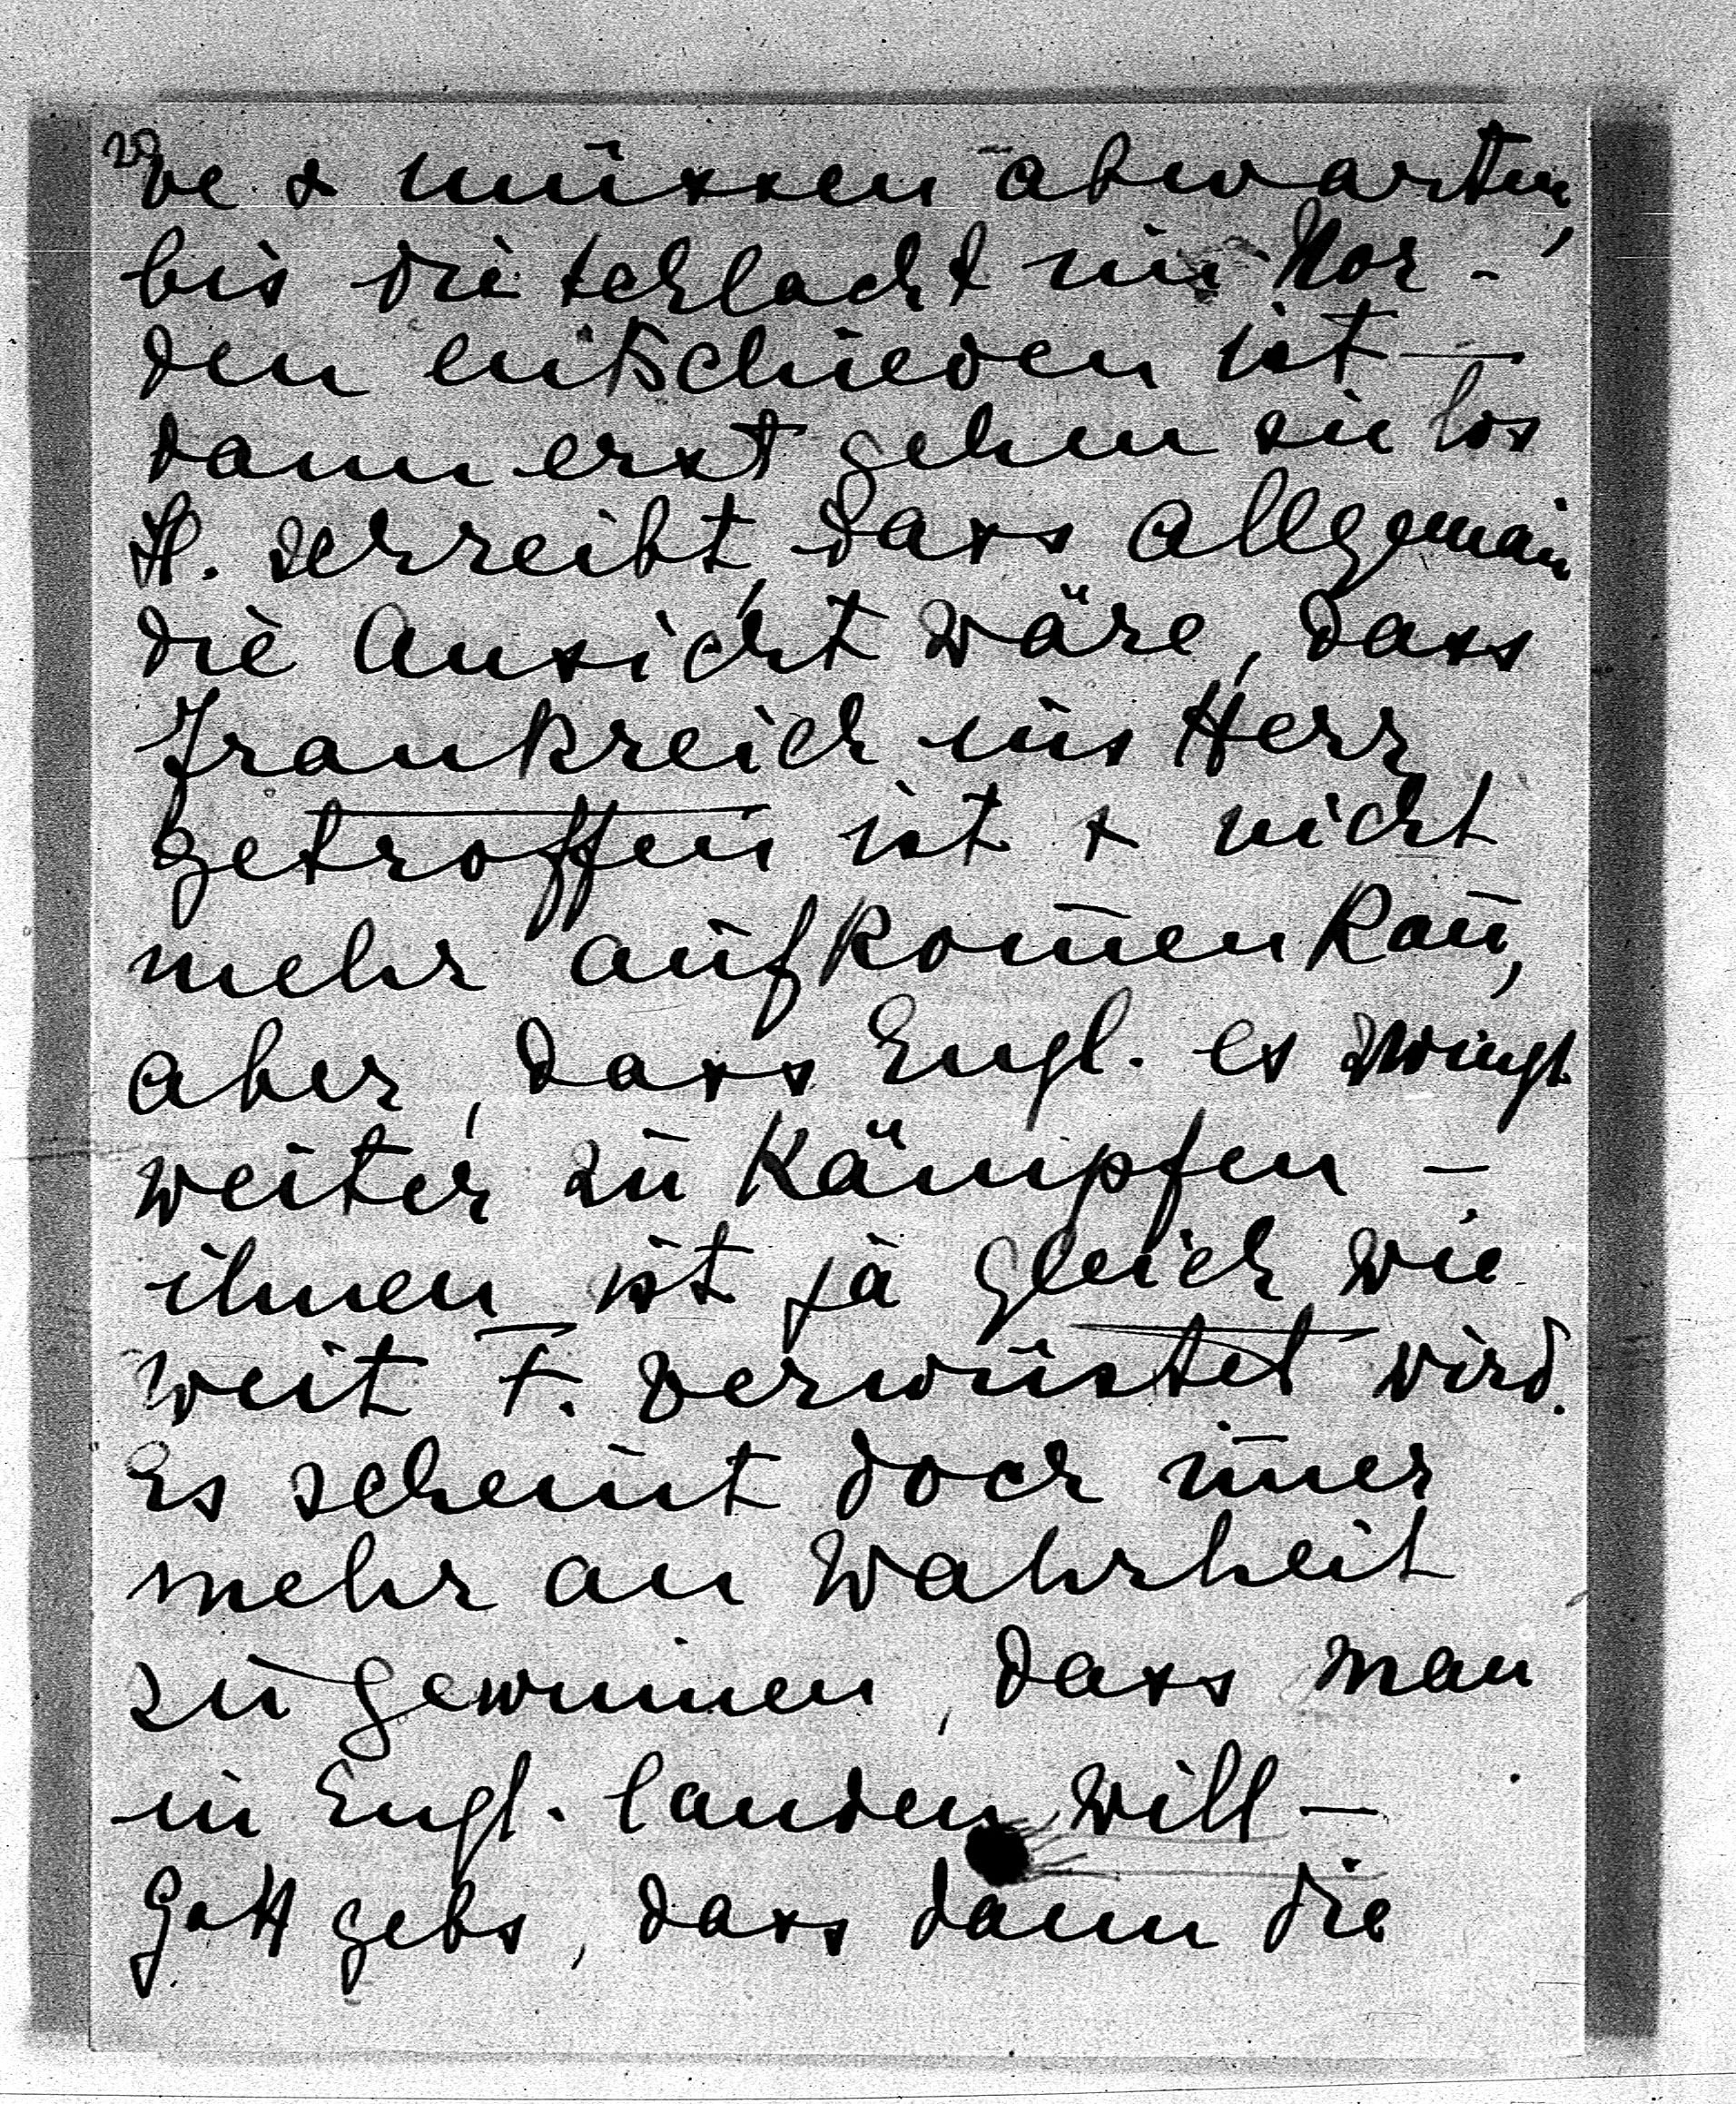 20
ve & müssen abwarten,
bis die Schlacht im Nor-
den entschieden ist —
dann erst gehen sie los
H. schreibt, dass allgemein
die Ansicht wäre, dass
Frankreich ins Herz
getroffen ist & nicht
mehr aufkom̄en kan̄,
aber, dass Engl. es zwingt
weiter zu kämpfen —
ihnen ist ja gleich wie
weit F. verwüstet wird.
Es scheint doch im̄er
mehr an Wahrheit
zu gewinnen, dass man
in Engl. landen will —
Gott gebs, dass dann die